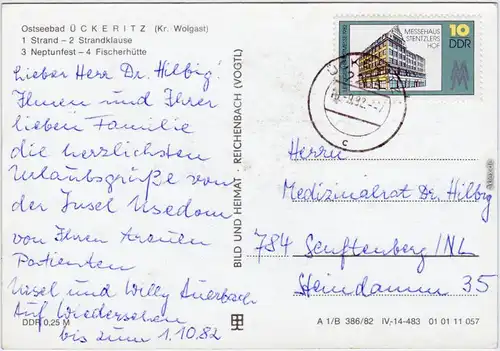 Ostseebad ÜCKERITZ (Kr. Wolgast)
1 Strand – 2 Strandklause
3 Neptunfest – 4 Fischerhütte
Lieber Herr Dr. Hilbig!
Ihnen und Ihrer
lieben Familie
die herzlichsten
Urlaubsgrüße von
der Insel Usedom
von Ihren treuen
Patienten
Ursel und Willy Auerbach
Auf Wiedersehen
bis zum 1.10.82
DDR 0,25 M
BILD UND HEIMAT · REICHENBACH (VOGTL)
MESSEHAUS
STENTZLERS
HOF
10
DDR
c
Herrn
Medizinalrat Dr. Hilbig
784 Senftenberg/NL
Steindamm 35
A 1/B 386/82 IV-14-483 01 01 11 057